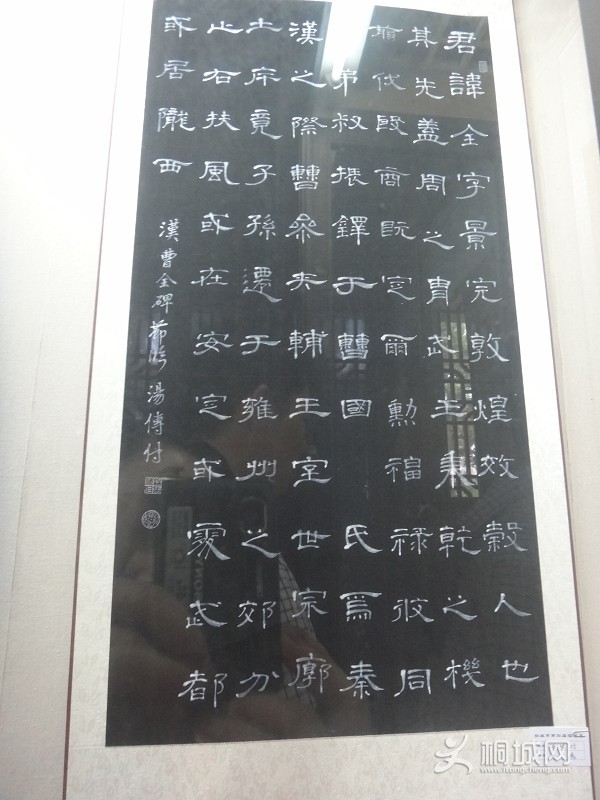 君諱全字景完敦煌效穀人也
其先蓋周之胄武王秉乾之機
翦伐殷商既定爾勳福祿攸同
弟叔振鐸于曹國氏焉秦
漢之際曹參夾輔王室世宗廓
土斥竟子孫遷于雍州之郊分
止右扶風或在安定或處武都
或居隴西
漢曹全碑節臨 湯傳付
桐城网
www.itongcheng.com